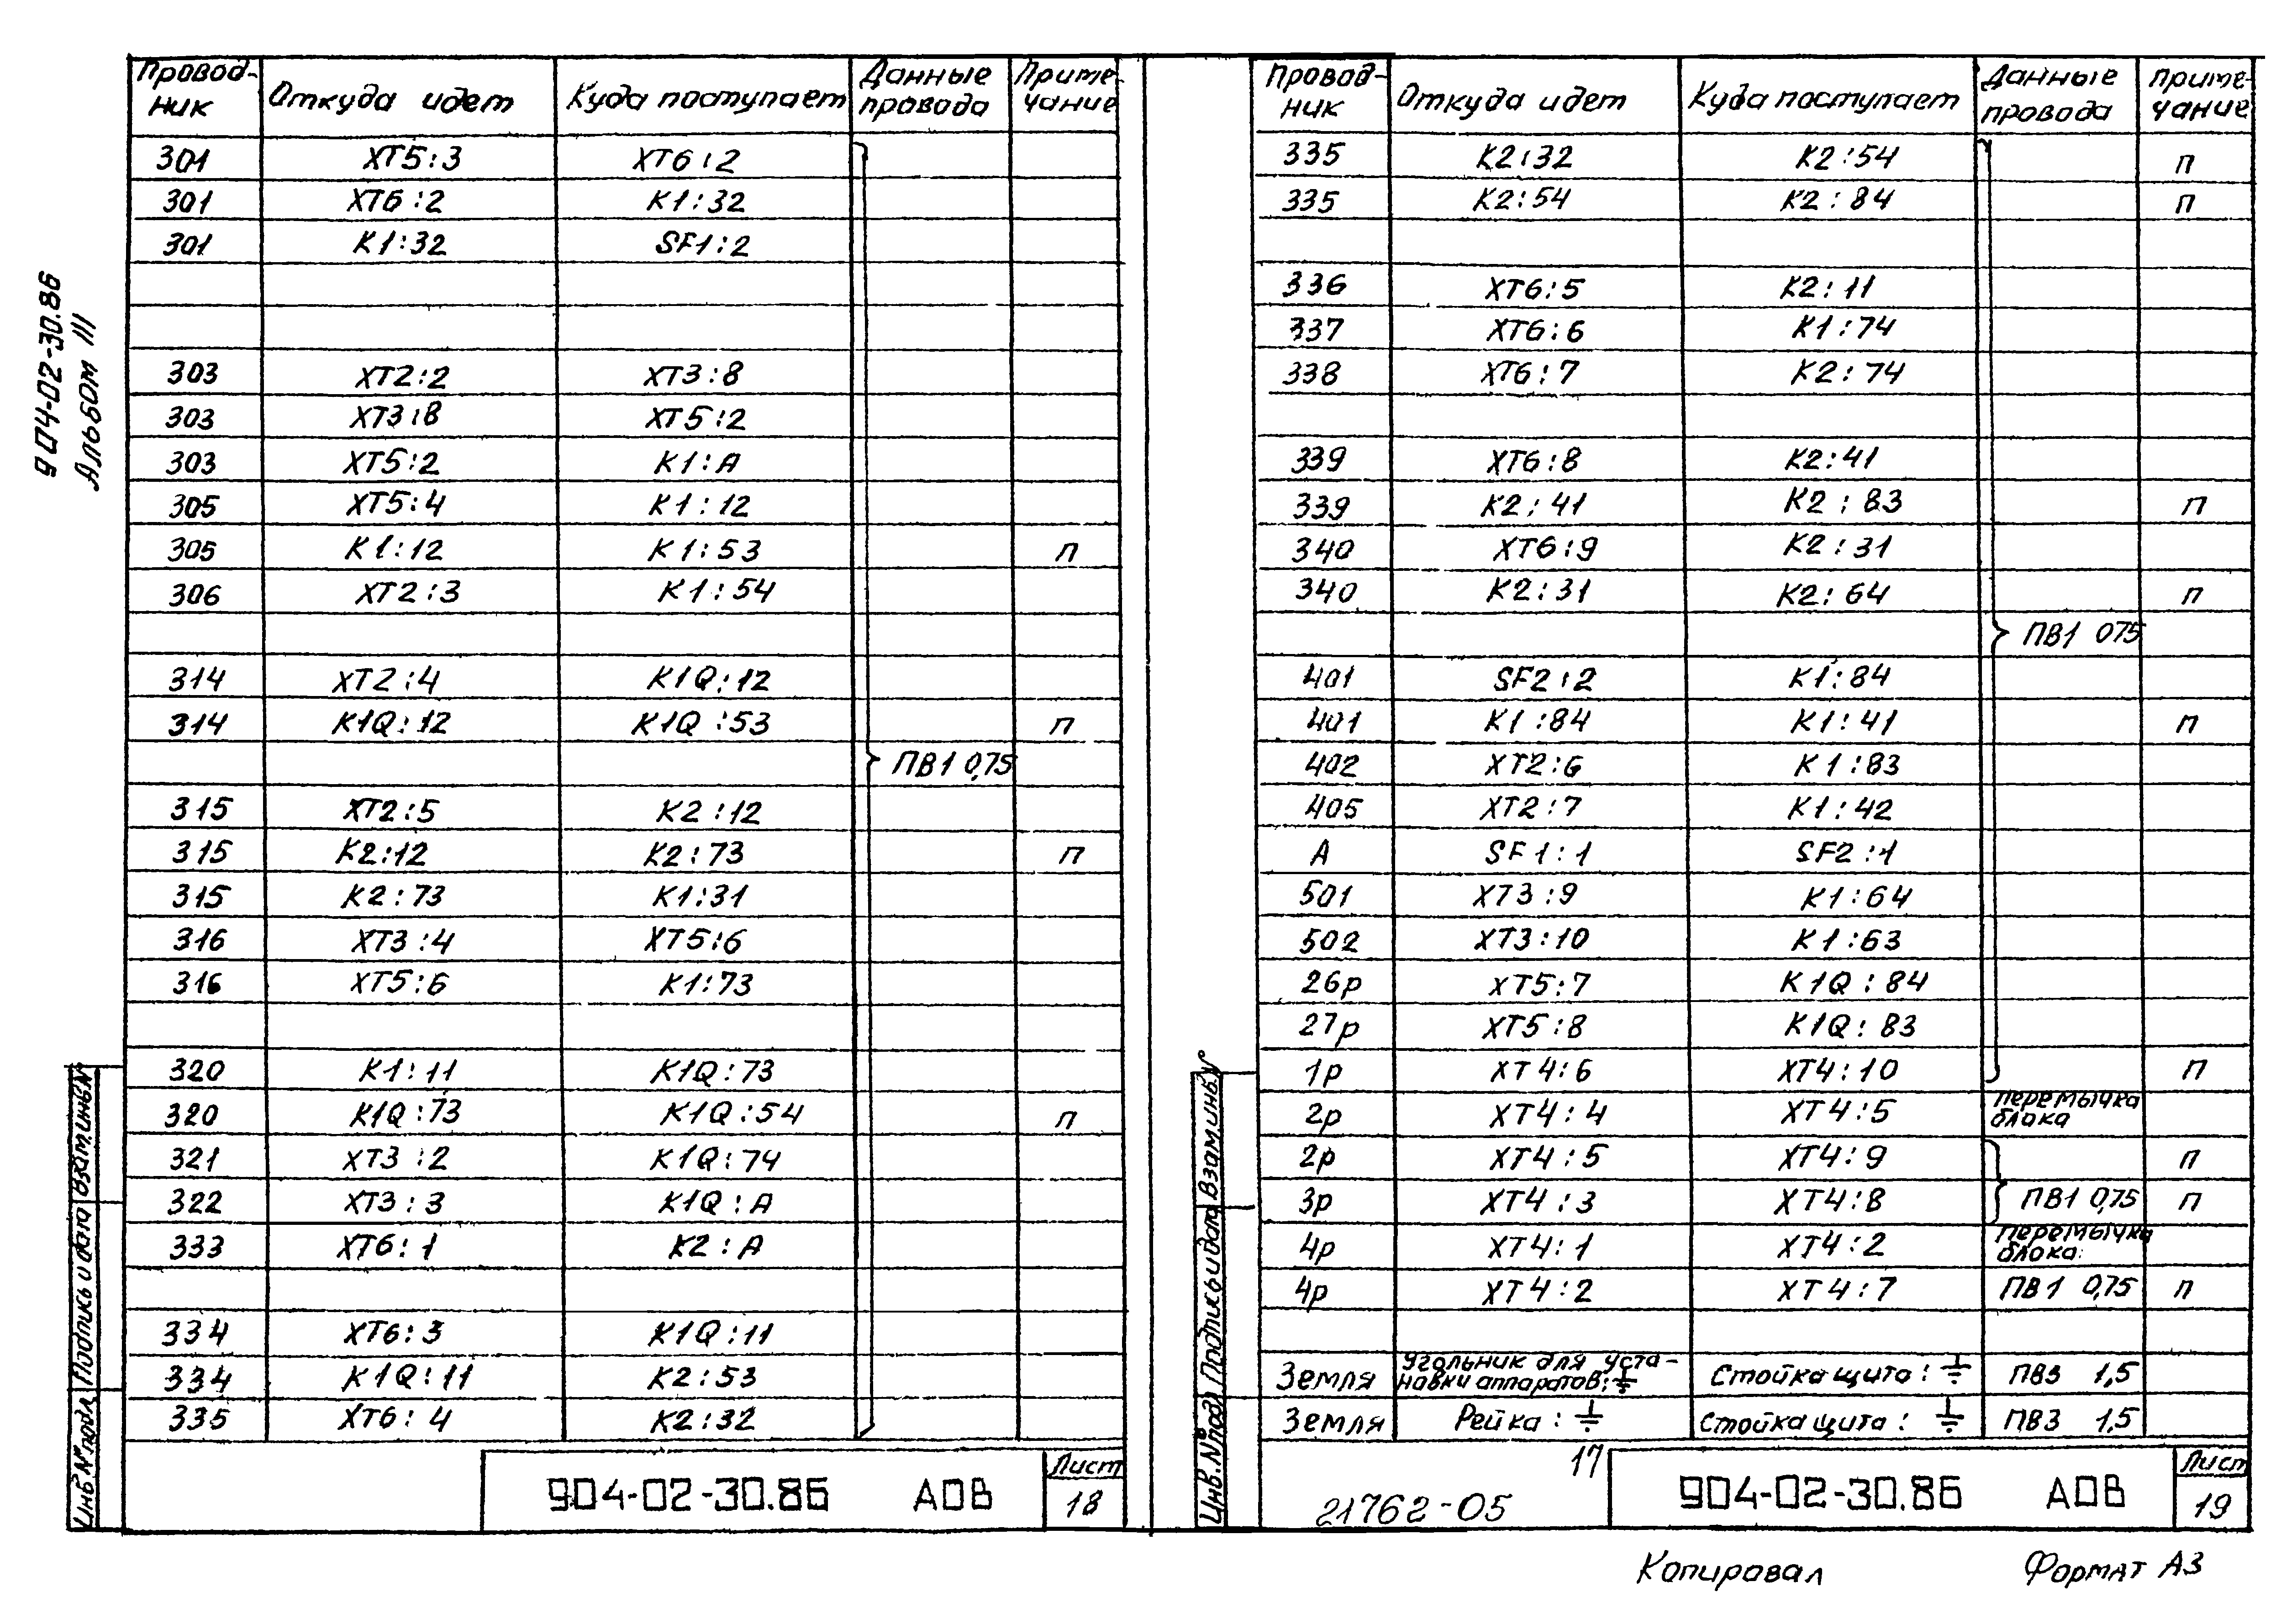 904-02-30.86
Альбом III
Провод-
ник
Откуда идет
Куда поступает
Данные
провода
Приме-
чание
301 XT5:3 XT6:2
301 XT6:2 K1:32
301 K1:32 SF1:2
303 XT2:2 XT3:8
303 XT3:8 XT5:2
303 XT5:2 K1:A
305 XT5:4 K1:12
305 K1:12 K1:53 п
306 XT2:3 K1:54
314 XT2:4 K1Q:12
314 K1Q:12 K1Q:53 п
ПВ1 0,75
315 XT2:5 K2:12
315 K2:12 K2:73 п
315 K2:73 K1:31
316 XT3:4 XT5:6
316 XT5:6 K1:73
320 K1:11 K1Q:73
320 K1Q:73 K1Q:54 п
321 XT3:2 K1Q:74
322 XT3:3 K1Q:A
333 XT6:1 K2:A
334 XT6:3 K1Q:11
334 K1Q:11 K2:53
335 XT6:4 K2:32
Инв.№подл.
Подпись и дата
Взам.инв.№
904-02-30.86 АОВ
Лист
18
Провод-
ник
Откуда идет
Куда поступает
Данные
провода
Приме-
чание
335 K2:32 K2:54 п
335 K2:54 K2:84 п
336 XT6:5 K2:11
337 XT6:6 K1:74
338 XT6:7 K2:74
339 XT6:8 K2:41
339 K2:41 K2:83 п
340 XT6:9 K2:31
340 K2:31 K2:64 п
ПВ1 075
401 SF2:2 K1:84
401 K1:84 K1:41 п
402 XT2:6 K1:83
405 XT2:7 K1:42
A SF1:1 SF2:1
501 XT3:9 K1:64
502 XT3:10 K1:63
26р XT5:7 K1Q:84
27р XT5:8 K1Q:83
1р XT4:6 XT4:10 п
2р XT4:4 XT4:5 перемычка
блока
2р XT4:5 XT4:9 п
3р XT4:3 XT4:8 ПВ1 0,75 п
4р XT4:1 XT4:2 Перемычка
блока.
4р XT4:2 XT4:7 ПВ1 0,75 п
Земля Угольник для уста-
новки аппаратов:⏚ Стойка щита:⏚ ПВ3 1,5
Земля Рейка:⏚ Стойка щита:⏚ ПВ3 1,5
Инв.№подл.
Подпись и дата
Взам.инв.№
17
21762-05
904-02-30.86 АОВ
Лист
19
Копировал
Формат А3